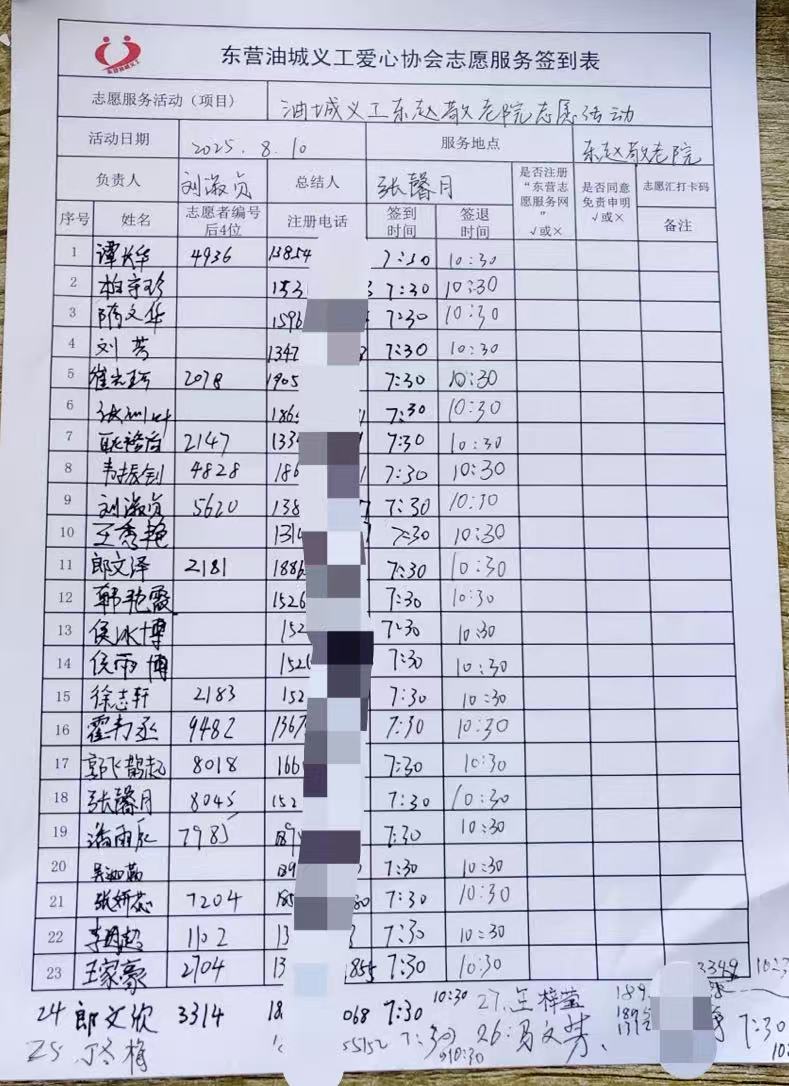 东营油城义工爱心协会志愿服务签到表
志愿服务活动（项目） 油城义工东赵敬老院志愿活动
活动日期 2025.8.10 服务地点 东赵敬老院
负责人 刘淑贞 总结人 张馨月 是否注册“东营志愿服务网” √或× 是否同意免责申明 √或× 志愿汇打卡码
序号 姓名 志愿者编号后4位 注册电话 签到时间 签退时间 备注
1 谭长华 4936 13854 7:30 10:30
2 柏守珍 153 3 7:30 10:30
3 隋文华 1596 7:30 10:30
4 刘芳 1347 2 7:30 10:30
5 2078 1905 7:30 10:30
6 186 1 7:30 10:30
7 2147 133 1 7:30 10:30
8 韦振钊 4828 186 1 7:30 10:30
9 刘淑贞 5620 138 7 7:30 10:30
10 王秀艳 131 7:30 10:30
11 郎文泽 2181 188 7:30 10:30
12 韩艳霞 1526 7:30 10:30
13 侯冰博 152 7:30 10:30
14 侯雨博 152 7:30 10:30
15 徐志轩 2183 152 7:30 10:30
16 霍韦丞 9482 1367 7:30 10:30
17 郭飞 8018 166 7:30 10:30
18 张馨月 8045 152 7:30 10:30
19 潘雨辰 7985 189 7:30 10:30
20 189 7:30 10:30
21 张妍蕊 7204 185 80 7:30 10:30
22 李明超 1102 13 3 7:30 10:30
23 王家豪 2704 13 1855 7:30 10:30 3349 10:3
24 郎文欣 3314 18 068 7:30 10:30 27. 王梓莹 189
25 丁冬梅 55152 7:30 10:30 26:马文芳、 7:30